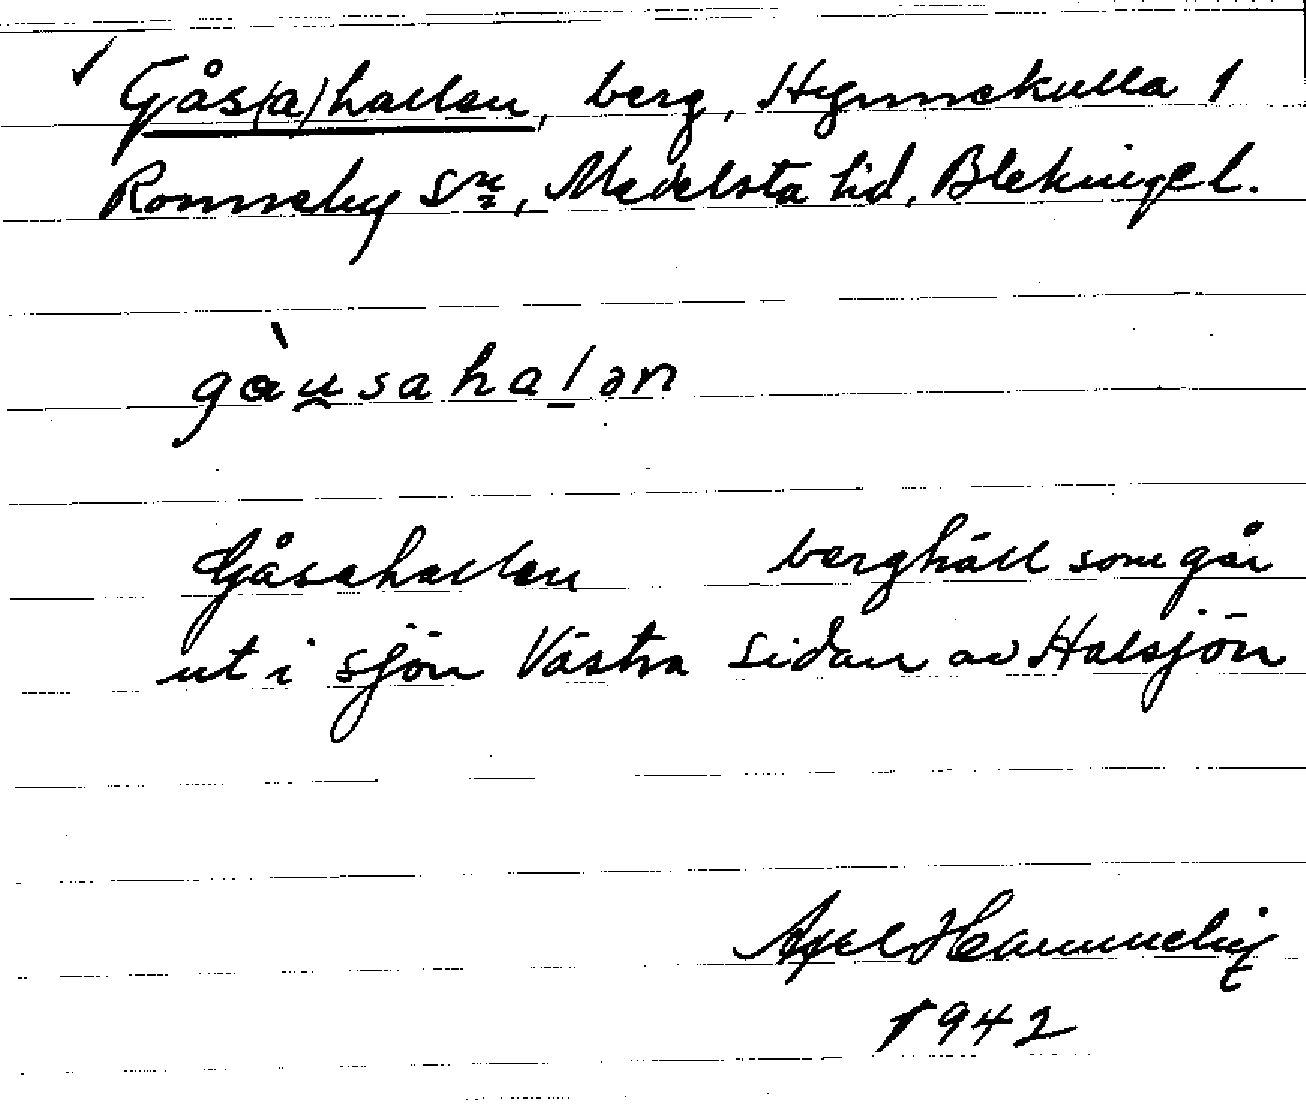 Gås(a)hallen, berg, Hynnekulla 1
Ronneby sn, Medelsta hd, Blekinge l.
gàu̯sahal̠ən
Gåsahallen berghäll som går
ut i sjön Västra Sidan av Halsjön
Axel
1942